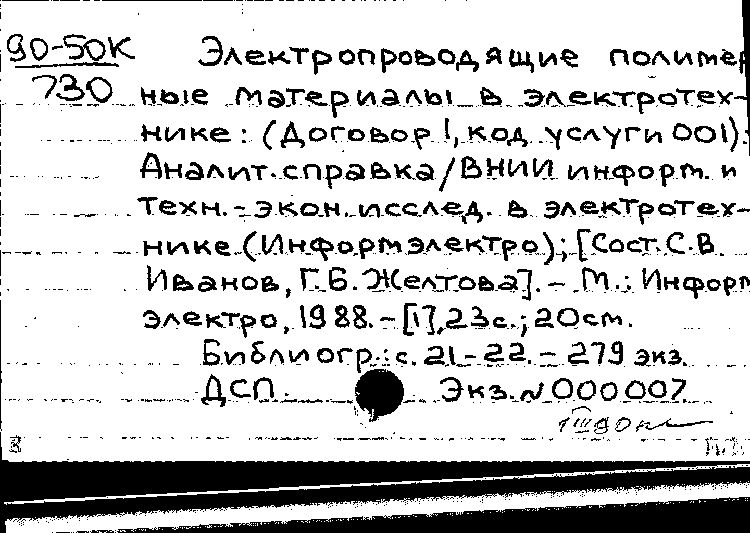 90-50К
730
Электропроводящие полимер
ные материалы в электротех-
нике: (Договор 1, код услуги 001):
Аналит. справка / ВНИИ информ. и
техн.-экон. исслед. в электротех-
нике (Информэлектро); [Сост. С.В.
Иванов, Г.Б. Желтова]. - М.: Информ
электро, 1988. - [1], 23 с.; 20 см.
Библиогр.: с. 21-22. - 279 экз.
ДСП. Экз. N 000007